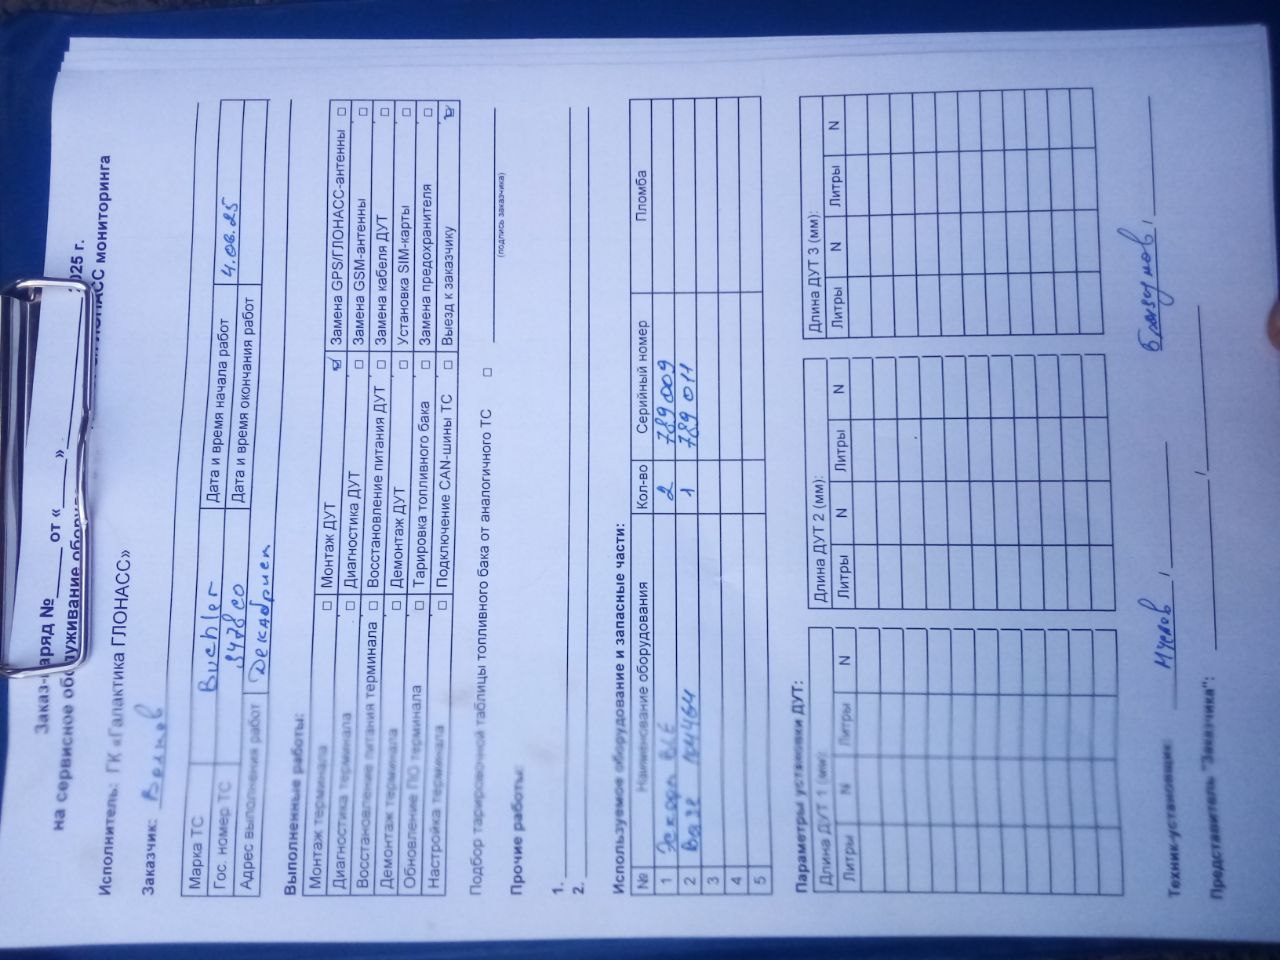 Заказ-наряд №_____ от «_____»
2025 г.
на сервисное обслуживание
ГЛОНАСС мониторинга
Исполнитель: ГК «Галактика ГЛОНАСС»
Заказчик: Волков
Марка ТС Buchler Дата и время начала работ 4.06.25
Гос. номер ТС 3478 СО Дата и время окончания работ
Адрес выполнения работ
Выполненные работы:
Монтаж терминала ☐ Монтаж ДУТ ☑ Замена GPS/ГЛОНАСС-антенны ☐
Диагностика терминала ☐ Диагностика ДУТ ☐ Замена GSM-антенны ☐
Восстановление питания терминала ☐ Восстановление питания ДУТ ☐ Замена кабеля ДУТ ☐
Демонтаж терминала ☐ Демонтаж ДУТ ☐ Установка SIM-карты ☐
Обновление ПО терминала ☐ Тарировка топливного бака ☐ Замена предохранителя ☐
Настройка терминала ☐ Подключение CAN-шины ТС ☐ Выезд к заказчику ☑
Подбор тарировочной таблицы топливного бака от аналогичного ТС ☐
(подпись заказчика)
Прочие работы:
1.
2.
Используемое оборудование и запасные части:
№ Наименование оборудования Кол-во Серийный номер Пломба
1 Эскорт BLE 2 789 009
2 База 1 789 011
3
4
5
Параметры установки ДУТ:
Длина ДУТ 1 (мм): Длина ДУТ 2 (мм): Длина ДУТ 3 (мм):
Литры N Литры N Литры N Литры N Литры N Литры N
Техник-установщик: /
/
Представитель "Заказчика": /